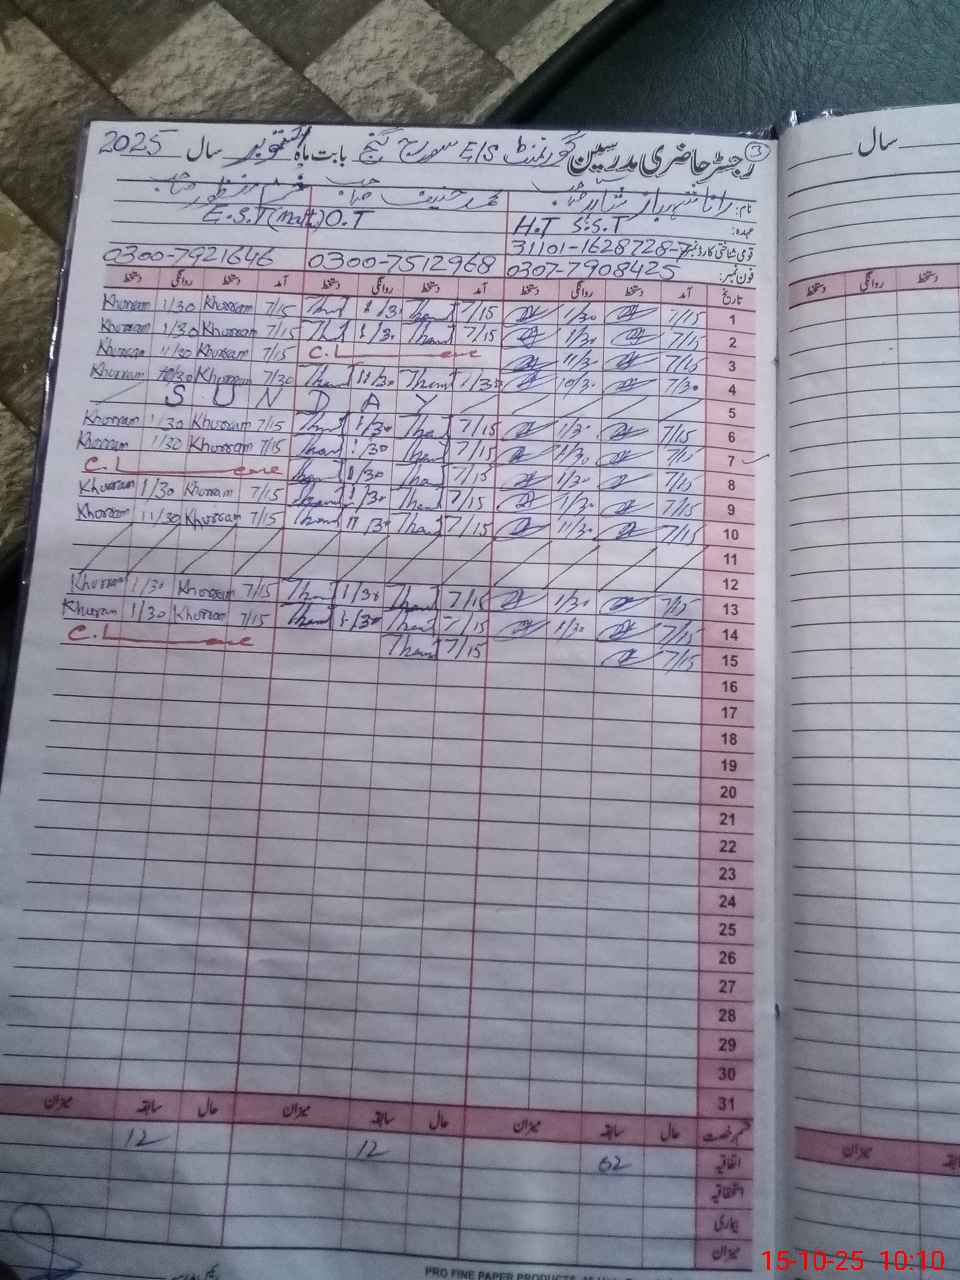 رجسٹر حاضری مدرسین گورنمنٹ E/S سورج گنج بابت ماہ اکتوبر سال 2025
3
سال
نام: رانا شہباز صاحب محمد حنیف صاحب
عہدہ: H.T S.S.T O.T E.S.T(Math)
قومی شناختی کارڈ نمبر: 31101-1628728-7
فون نمبر: 0307-7908425 0300-7512968 0300-7921646
تاریخ آمد دستخط روانگی دستخط آمد دستخط روانگی دستخط آمد دستخط روانگی دستخط
دستخط روانگی دستخط
1 7/15 1/30 7/15 1/30 7/15 Khurram 1/30 Khurram
2 7/15 1/30 7/15 1/30 7/15 Khurram 1/30 Khurram
3 7/15 11/30 C.Leave 7/15 Khurram 11/30 Khurram
4 7/30 10/30 11/30 7/30 Khurram 10/30 Khurram
5 S U N D A Y
6 7/15 1/30 7/15 1/30 7/15 Khurram 1/30 Khurram
7 7/15 1/30 7/15 1/30 7/15 Khurram 1/30 Khurram
8 7/15 1/30 7/15 1/30 C.Leave
9 7/15 1/30 7/15 1/30 7/15 Khurram 1/30 Khurram
10 7/15 11/30 7/15 11/30 7/15 Khurram 11/30 Khurram
11
12
13 7/15 1/30 7/15 1/30 7/15 Khurram 1/30 Khurram
14 7/15 1/30 7/15 1/30 7/15 Khurram 1/30 Khurram
15 7/15 7/15 C.Leave
16
17
18
19
20
21
22
23
24
25
26
27
28
29
30
31
قسم رخصت حال سابقہ میزان حال سابقہ میزان حال سابقہ میزان
میزان
اتفاقیہ 02 12 12
استحقاقیہ
بیماری
میزان
PRO FINE PAPER PRODUCTS
15-10-25 10:10